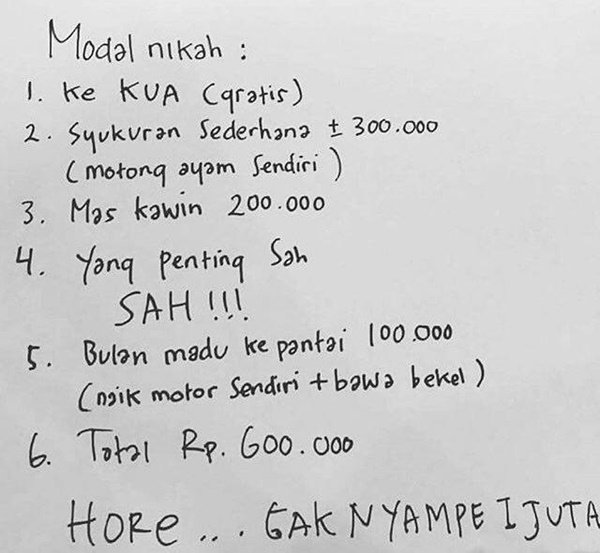 Modal nikah :
1. Ke KUA (gratis)
2. Syukuran Sederhana ± 300.000
(motong ayam Sendiri)
3. Mas kawin 200.000
4. Yang Penting Sah
SAH!!!
5. Bulan madu ke pantai 100.000
(naik motor Sendiri + bawa bekel)
6. Total Rp. 600.000
HORE... GAK NYAMPE 1 JUTA